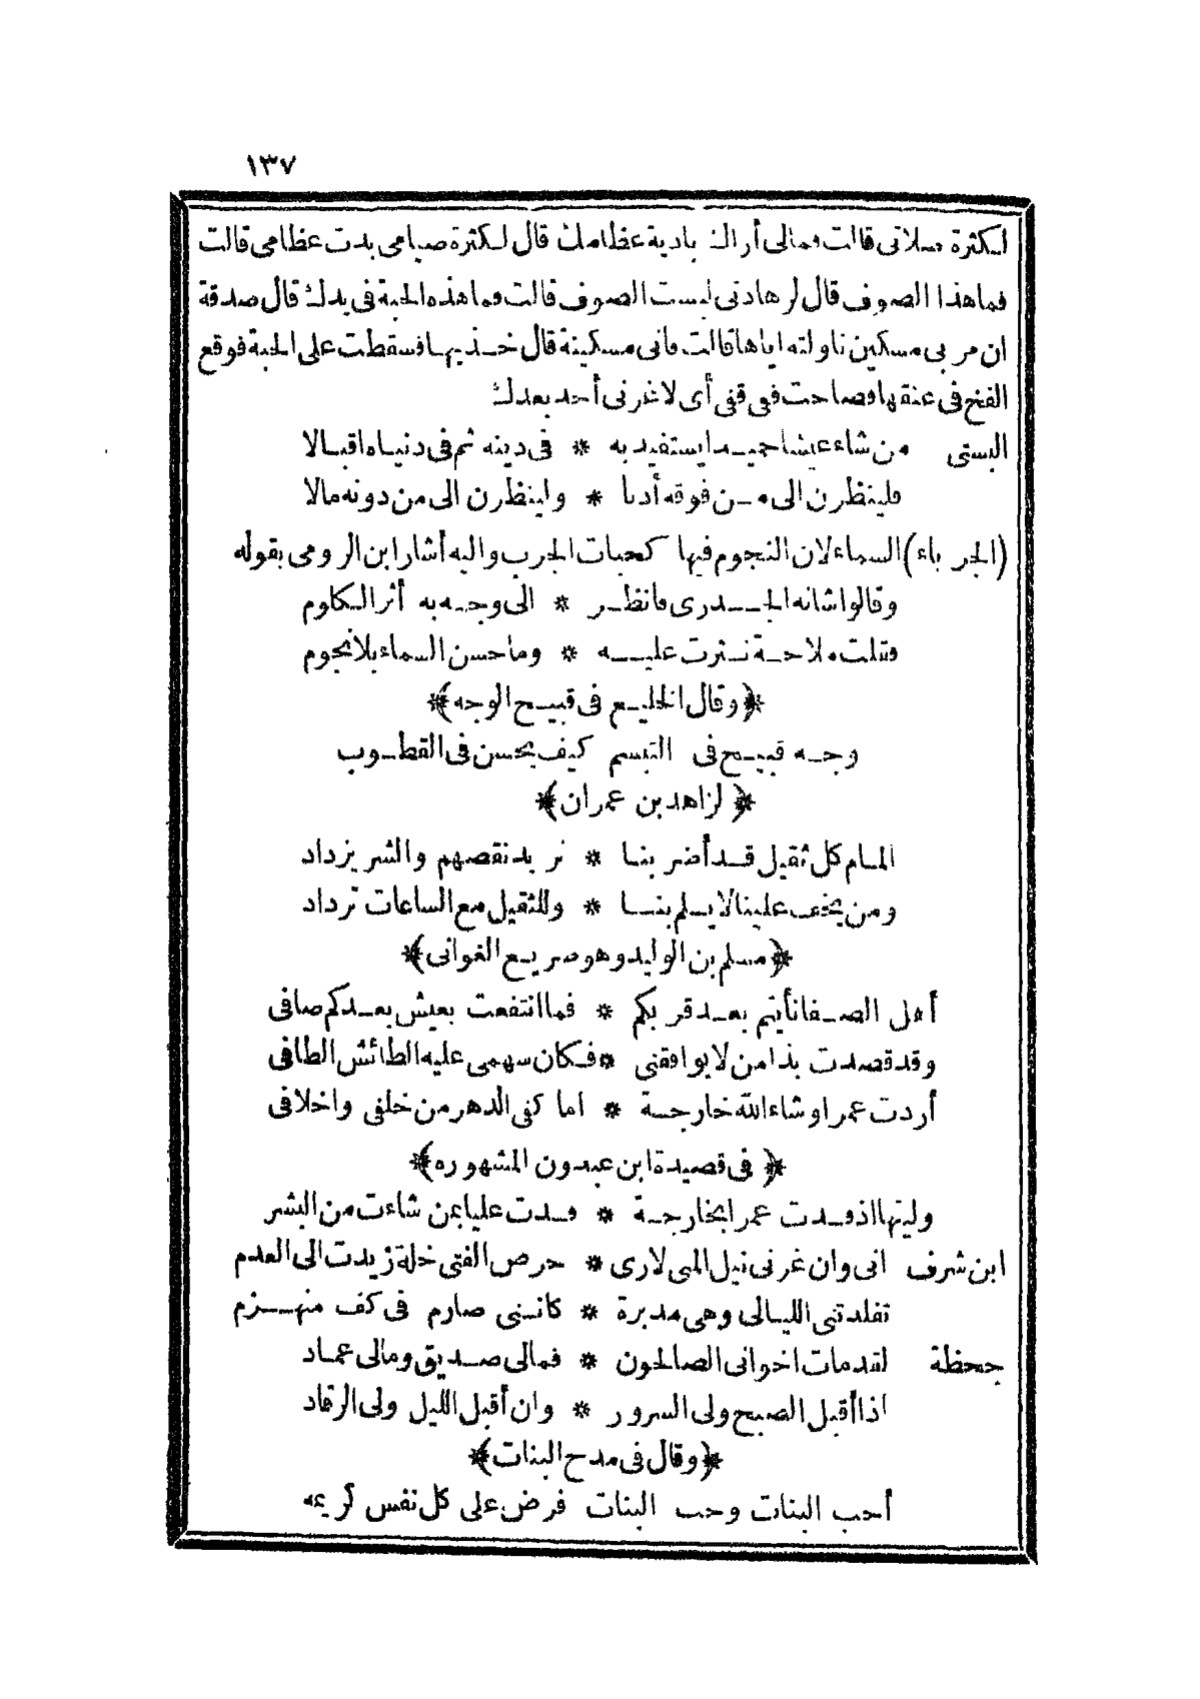 ١٣٧
لكثرة صلاتى قالت فمالى أراك بادية عظامك قال لكثرة صيامى بدت عظامى قالت
فما هذا الصوف قال لزهادتى لبست الصوف قالت وما هذه الحبة فى يدك قال صدقة
ان مر بى مسكين ناولته اياها قالت فانى مسكينة قال خـذيها فسقطت على الحبة فوقع
الفخ فى عنقها وصاحت قعى قعى أى لا غرنى أحد بعدك
البستى من شاء عيشا حميـدا يستفيد به * فى دينه ثم فى دنياه اقبالا
فلينظرن الى مـن فوقه أدبا * ولينظرن الى من دونه مالا
(الجرباء) السماء لان النجوم فيها كحبات الجرب واليه أشار ابن الرومى بقوله
وقالوا شانه الجـدرى فانظـر * الى وجـه به أثر الكلوم
فقلت ملاحـة نـثرت عليـه * وما حسن السماء بلا نجوم
﴿وقال الخليـع فى قبيـح الوجه﴾
وجـه قبيـح فى التبسم كيف يحسن فى القطـوب
﴿لزاهد بن عمران﴾
المـام كل ثقيل قـد أضر بنـا * نريد نقصهم والشر يزداد
ومن يخف علينا لا يـلم بنـا * وللثقيل مع الساعات ترداد
﴿مسلم بن الوليد وهو صريـع الغوانى﴾
أهل الصـفا نأيتم بعـد قربكم * فما انتفعت بعيش بعـدكم صافى
وقد قصدت بذا من لا يوافقنى * فـكان سهمى عليه الطائش الطافى
أردت عمرا وشاء الله خارجـة * اما كفى الدهر من خلفى واخلافى
﴿فى قصيدة ابن عبدون المشهوره﴾
وليتها اذ فـدت عمرا بخارجـة * فـدت عليا بمن شاءت من البشر
ابن شرف انى وان غرنى نيل المنى لارى * حرص الفتى خلة زيدت الى العدم
تقلدتنى الليـالى وهى مدبرة * كانـنى صارم فى كف منهـزم
جحظة لقد مات اخوانى الصالحون * فمالى صـديق ومالى عمـاد
اذا أقبل الصبح ولى السرور * وان أقبل الليل ولى الرقاد
﴿وقال فى مدح البنات﴾
أحب البنات وحب البنات فرض على كل نفس كريمه